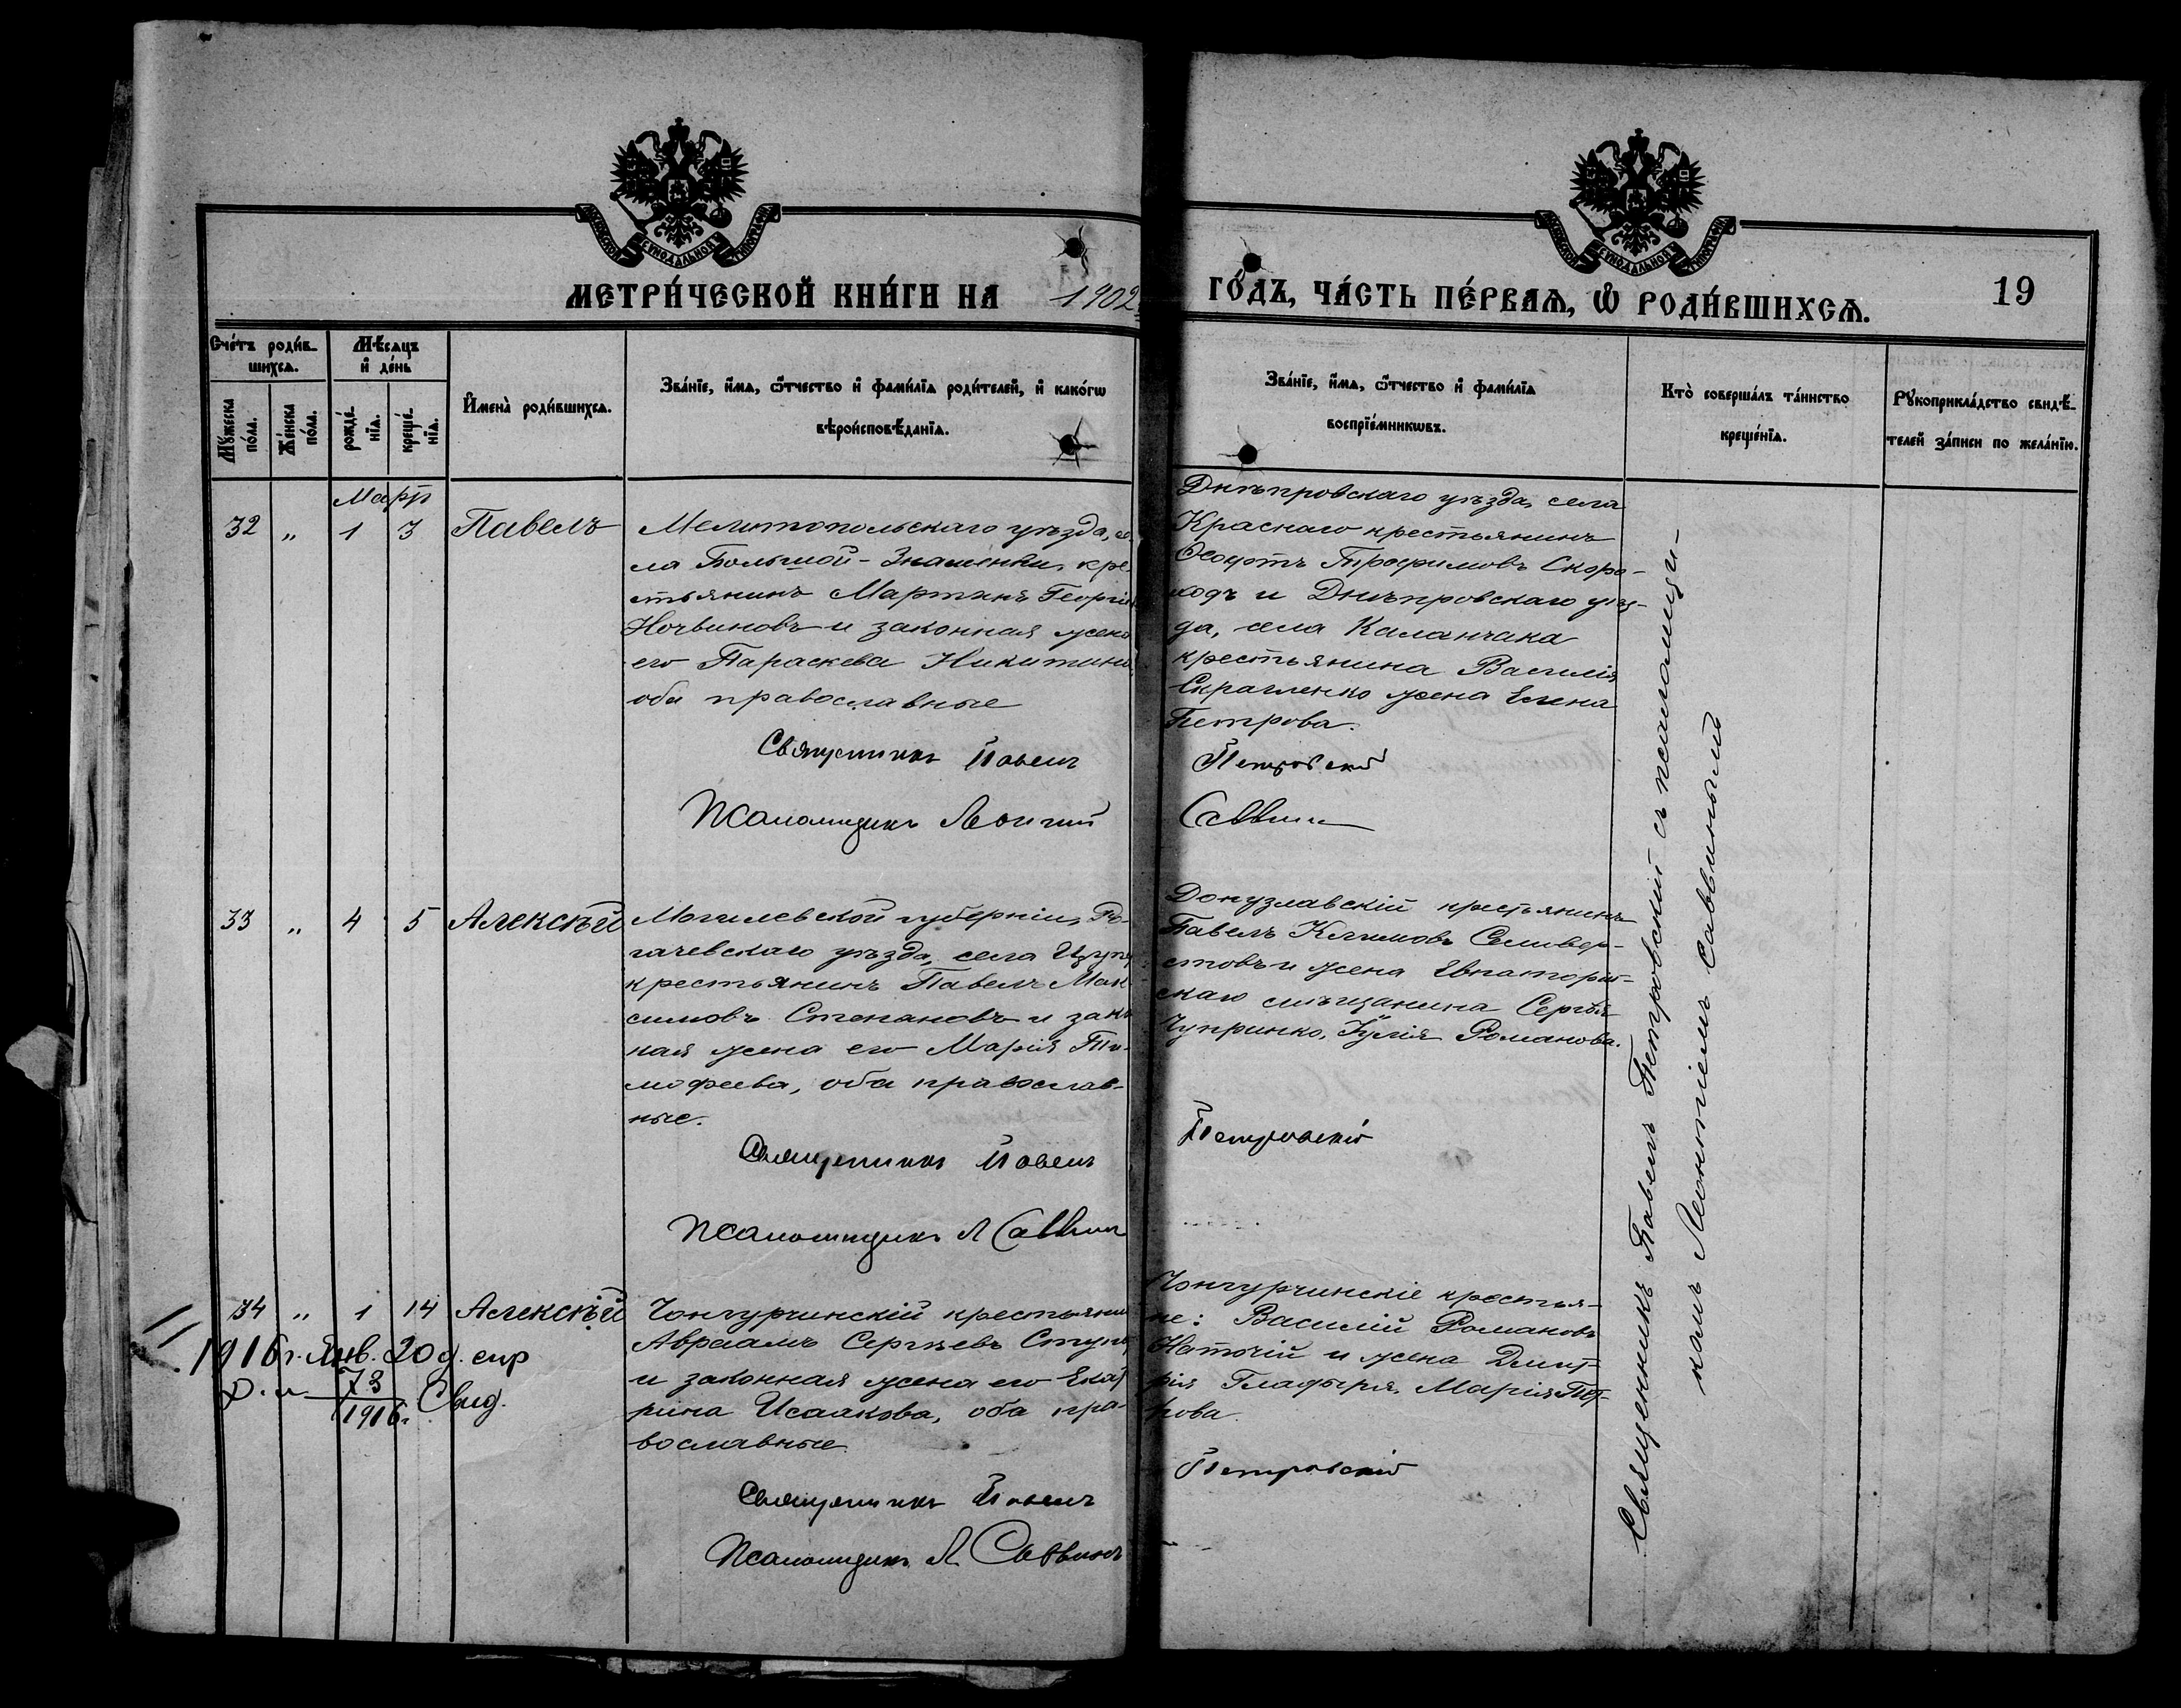 МЕТРИ́ЧЕСКОЙ КНИ́ГИ НА 1902
ГО́ДЪ, ЧА́СТЬ ПЕ́РВАѦ, Ѽ РОДИ́ВШИХСѦ.
19
Сче́тъ роди́в-
шихсѧ.
Мꙋ́жеска
по́ла.
Же́нска
по́ла.
Мѣ́сѧцъ
и҆ де́нь
рожде́-
нїѧ.
креще́-
нїѧ.
И҆мена̀ роди́вшихсѧ.
Зва́нїе, и҆́мѧ, ѻ҆́тчество и҆ фами́лїѧ роди́телей, и҆ како́гѡ
вѣроисповѣ́данїѧ.
Зва́нїе, и҆́мѧ, ѻ҆́тчество и҆ фами́лїѧ
воспрїе́мникѡвъ.
Кто̀ соверша́лъ та́инство
креще́нїѧ.
Рꙋкоприкла́дство свидѣ́-
телей за́писи по жела́нїю.
Мартъ
32 „ 1 3 Павелъ
Мелитопольскаго уѣзда, се-
ла Большой-Знаменки, кре-
стьянинъ Мартинъ Георгіе
Ночвиновъ и законная жена
его Параскева Никитина
оба православные
Священникъ Павелъ
Псаломщикъ Леонтий
Днѣпровскаго уѣзда, села
Краснаго крестьянинъ
Ѳеодотъ Трофимовъ Скоро-
ходъ и Днѣпровскаго уѣз-
да, села Каланчака
крестьянина Василія
жена Елена
Петрова.
Петровскій
Саввин
33 „ 4 5 Алексѣй
Могилевской губерніи, Ро-
гачевскаго уѣзда, села
крестьянинъ Павелъ Мак
симовъ Степановъ и зако
ная жена его Марія Ти-
мофеева, оба православ-
ные.
Священникъ Павелъ
Псаломщикъ Л Саввин
Донузлавскій крестьянинъ
Павелъ Климовъ Селивер-
стовъ и жена Евпаторій-
скаго мѣщанина Сергѣя
Чупринко, Іулія Романова.
Петровскій
34 „ 1 14 Алексѣй
1916 г. Янв. 20 д. спр
73
1916 г. Свид.
Чонгурчинскій крестьянин
Авраамъ Сергѣевъ
и законная жена его Екат
рина Исаакова, оба пра-
вославные.
Священникъ Павелъ
Псаломщикъ Л. Саввинъ
Чонгурчинскіе крестья-
не: Василій Романовъ
Наточій и жена Дмит-
рія Гладыря, Марія Пет-
рова.
Петровскій
Священникъ Павелъ Петровскій съ псаломщи-
комъ Леонтіемъ Саввинымъ